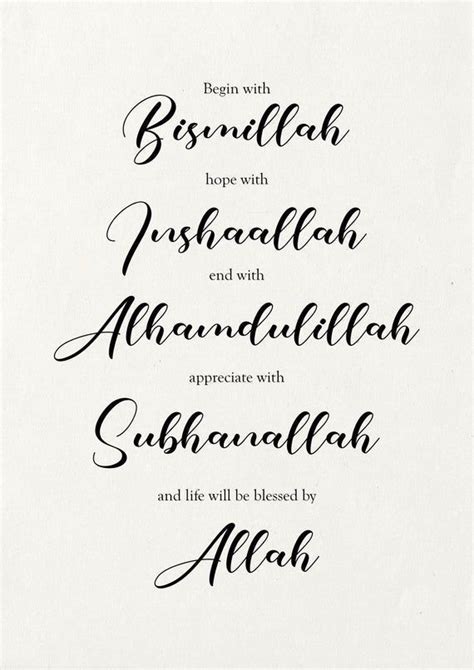 Begin with
Bismillah
hope with
Inshaallah
end with
Alhamdulillah
appreciate with
Subhanallah
and life will be blessed by
Allah